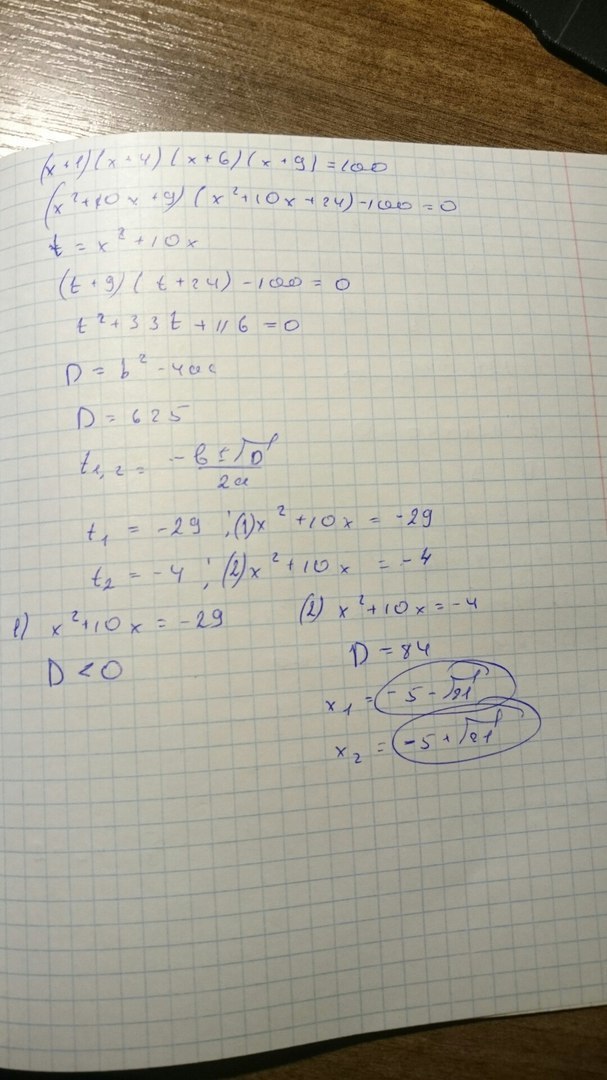 (x+1)(x+4)(x+6)(x+9)=100
(x²+10x+9)(x²+10x+24)-100=0
t = x²+10x
(t+9)(t+24)-100=0
t²+33t+116=0
D = b²-4ac
D = 625
t₁,₂ = (-b±√D)/2a
t₁ = -29 ; (1) x²+10x = -29
t₂ = -4 ; (2) x²+10x = -4
1) x²+10x = -29
D < 0
(2) x²+10x = -4
D = 84
x₁ = -5-√21
x₂ = -5+√21